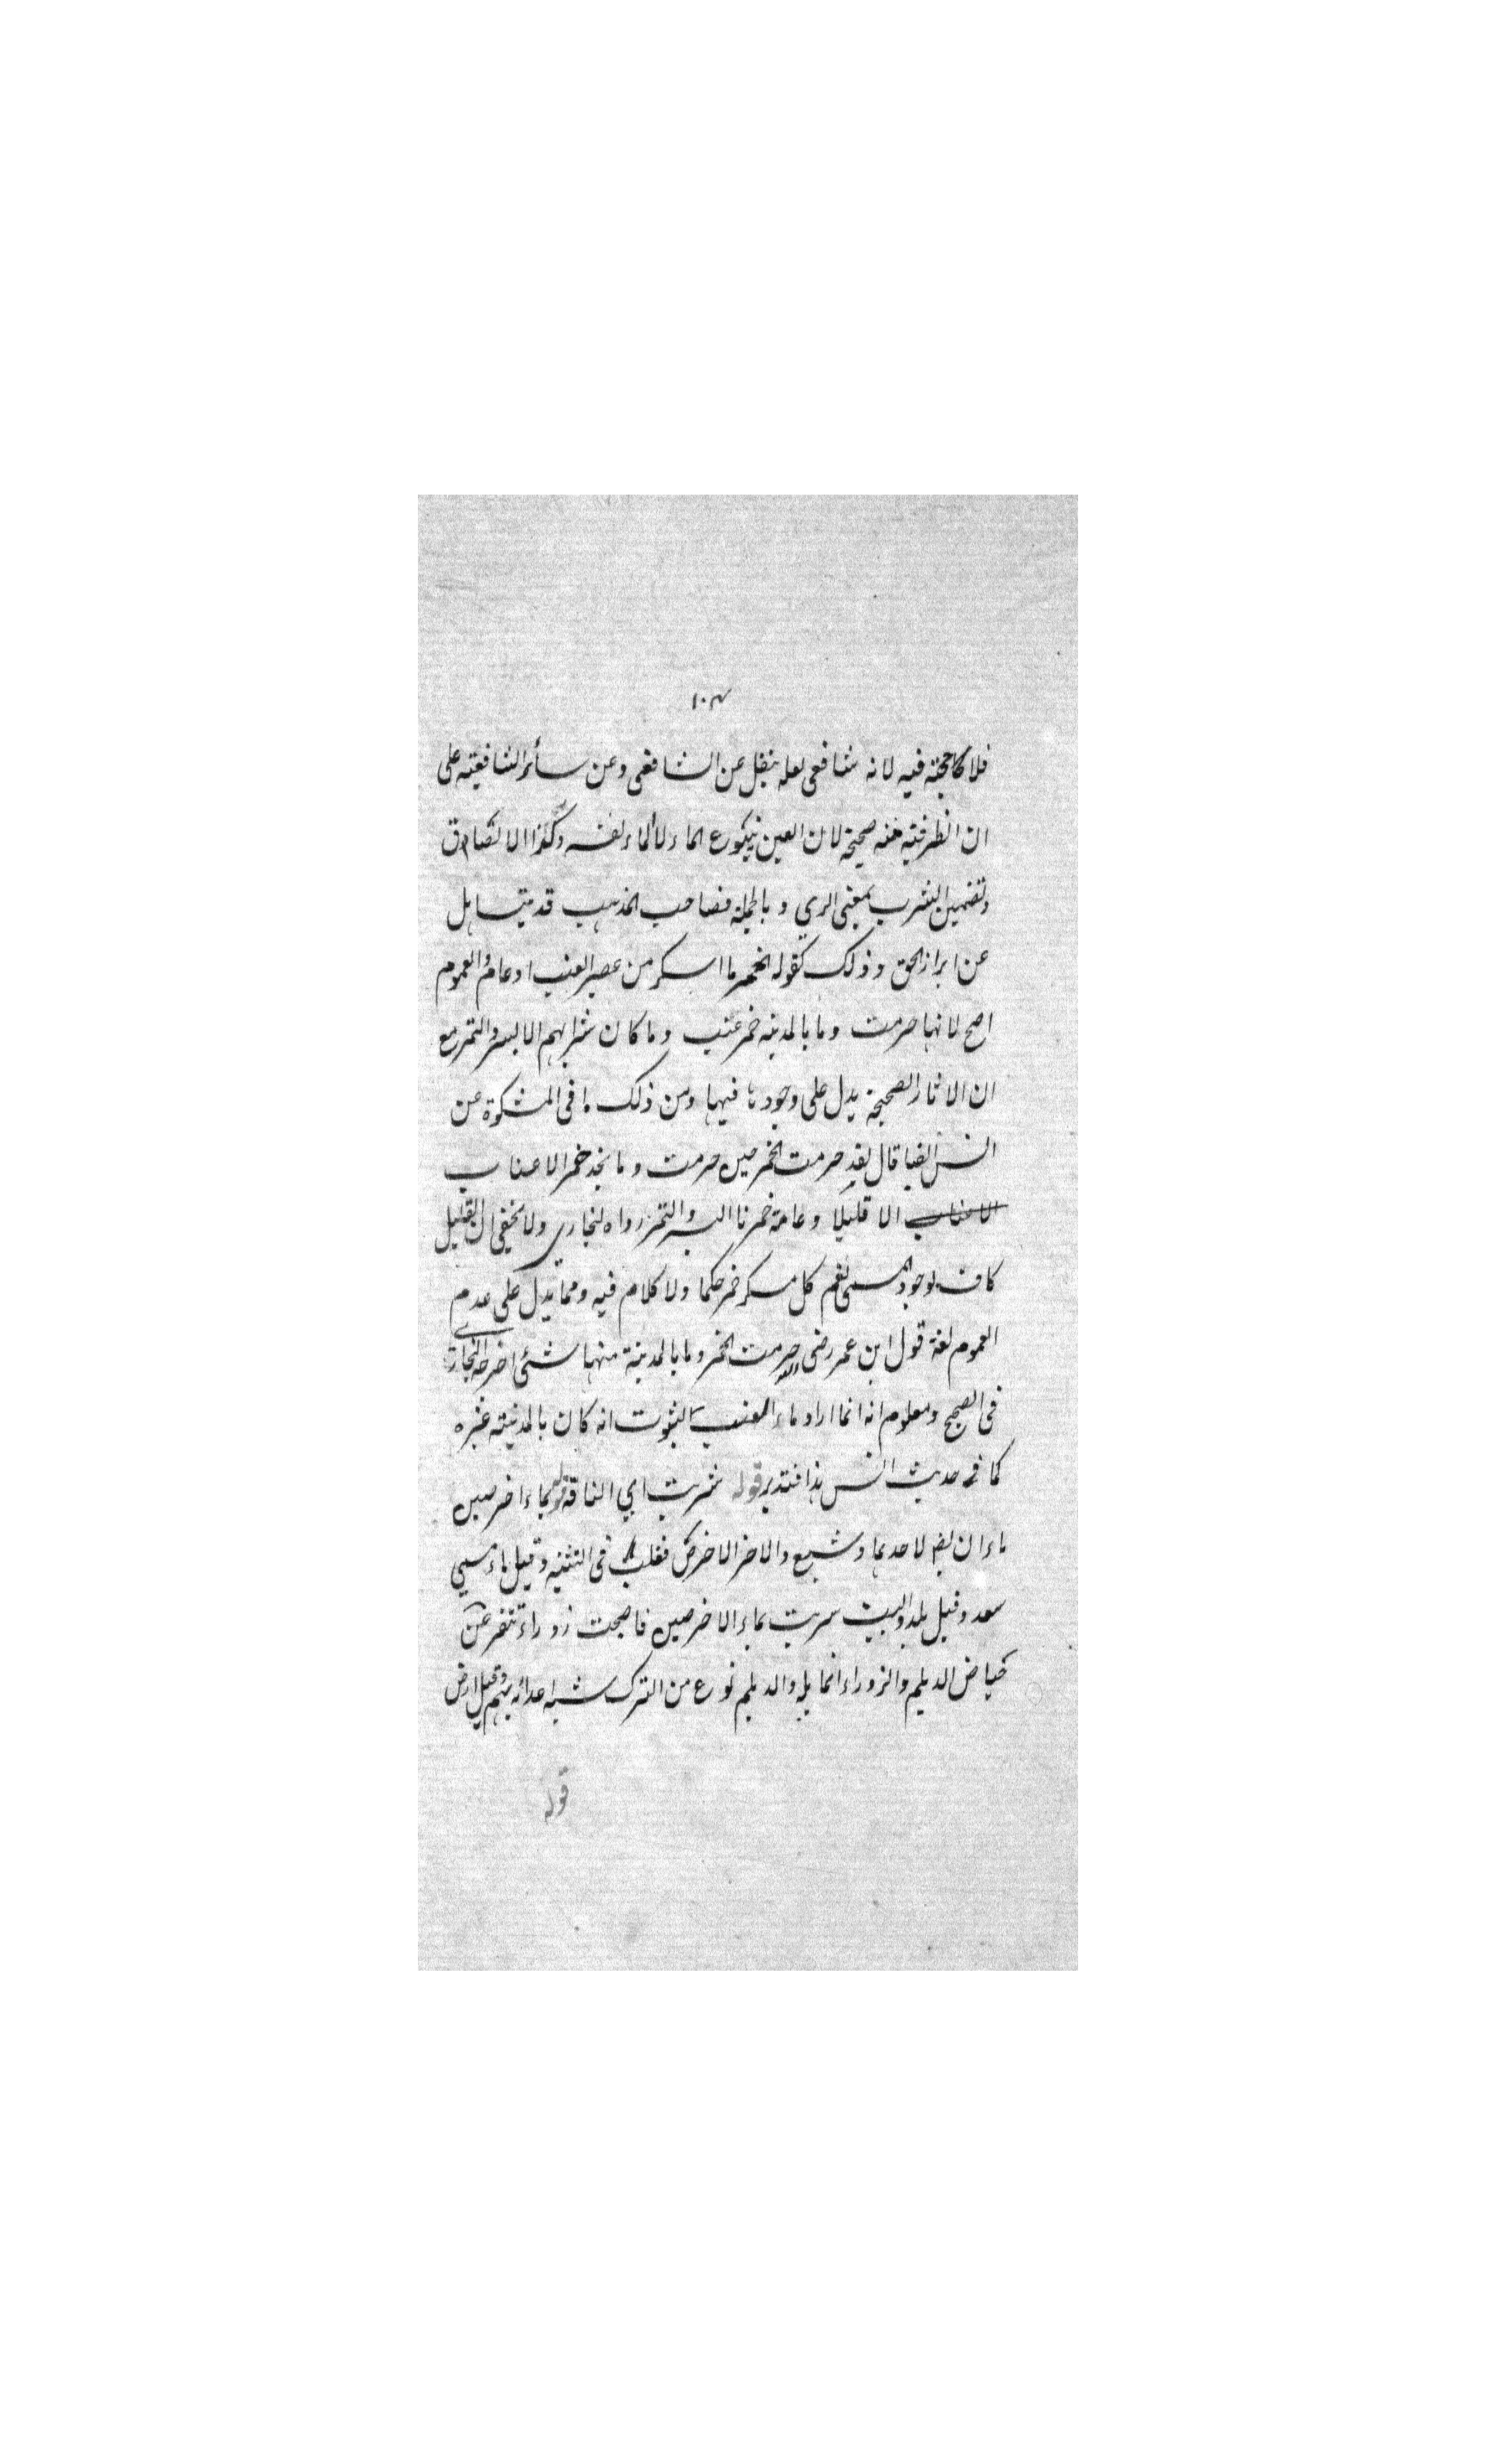 ١٠٣
فلا حجة فيه لانه شافعى لعله ينقل عن الشافعى وعن سائر الشافعية على
ان الظرفية صحيحة لان العين الماء لا الماء نفسه وكذا الالتصاق
وتضمين الشرب بمعنى الري وبالجملة فصاحب المذهب قد يتساهل
عن ابراز الحق وذلك كقوله الخمر ما اسكر من عصير العنب او عام والعموم
اصح لانها حرمت وما بالمدينه خمر عنب وما كان شرابهم الا البسر والتمر مع
ان الاثار الصحيحة يدل على وجودها فيها ومن ذلك ما فى المشكوة عن
انس ايضا قال لقد حرمت الخمر حين حرمت وما نجد خمر الاعناب
الاعناب الا قليلا وعامة خمرنا البسر والتمر رواه البخاري ولا يخفى ان القليل
كاف لوجود المسمى نعم كل مسكر خمر حكما ولا كلام فيه ومما يدل على عدم
العموم لغة قول ابن عمر رضى الله حرمت الخمر وما بالمدينة منها شئى اخرجه البخاري
فى الصحيح ومعلوم انه انما اراد ماء العنب لثبوت انه كان بالمدينة غيره
كما فى حديث انس هذا فتدبر قوله شربت اي الناقة بماء الدحرضين
ماءان يقال لاحدهما وشيع والاخر الدحرض فغلب فى التثنيه وقيل ماء لبني
سعد وقيل بلد والبيت شربت بماء الدحرضين فاصبحت زوراء تنفر عن
حياض الديلم والزوراء المائلة والديلم نوع من الترك شبه اعدائه بهم وقيل ارض
قوله